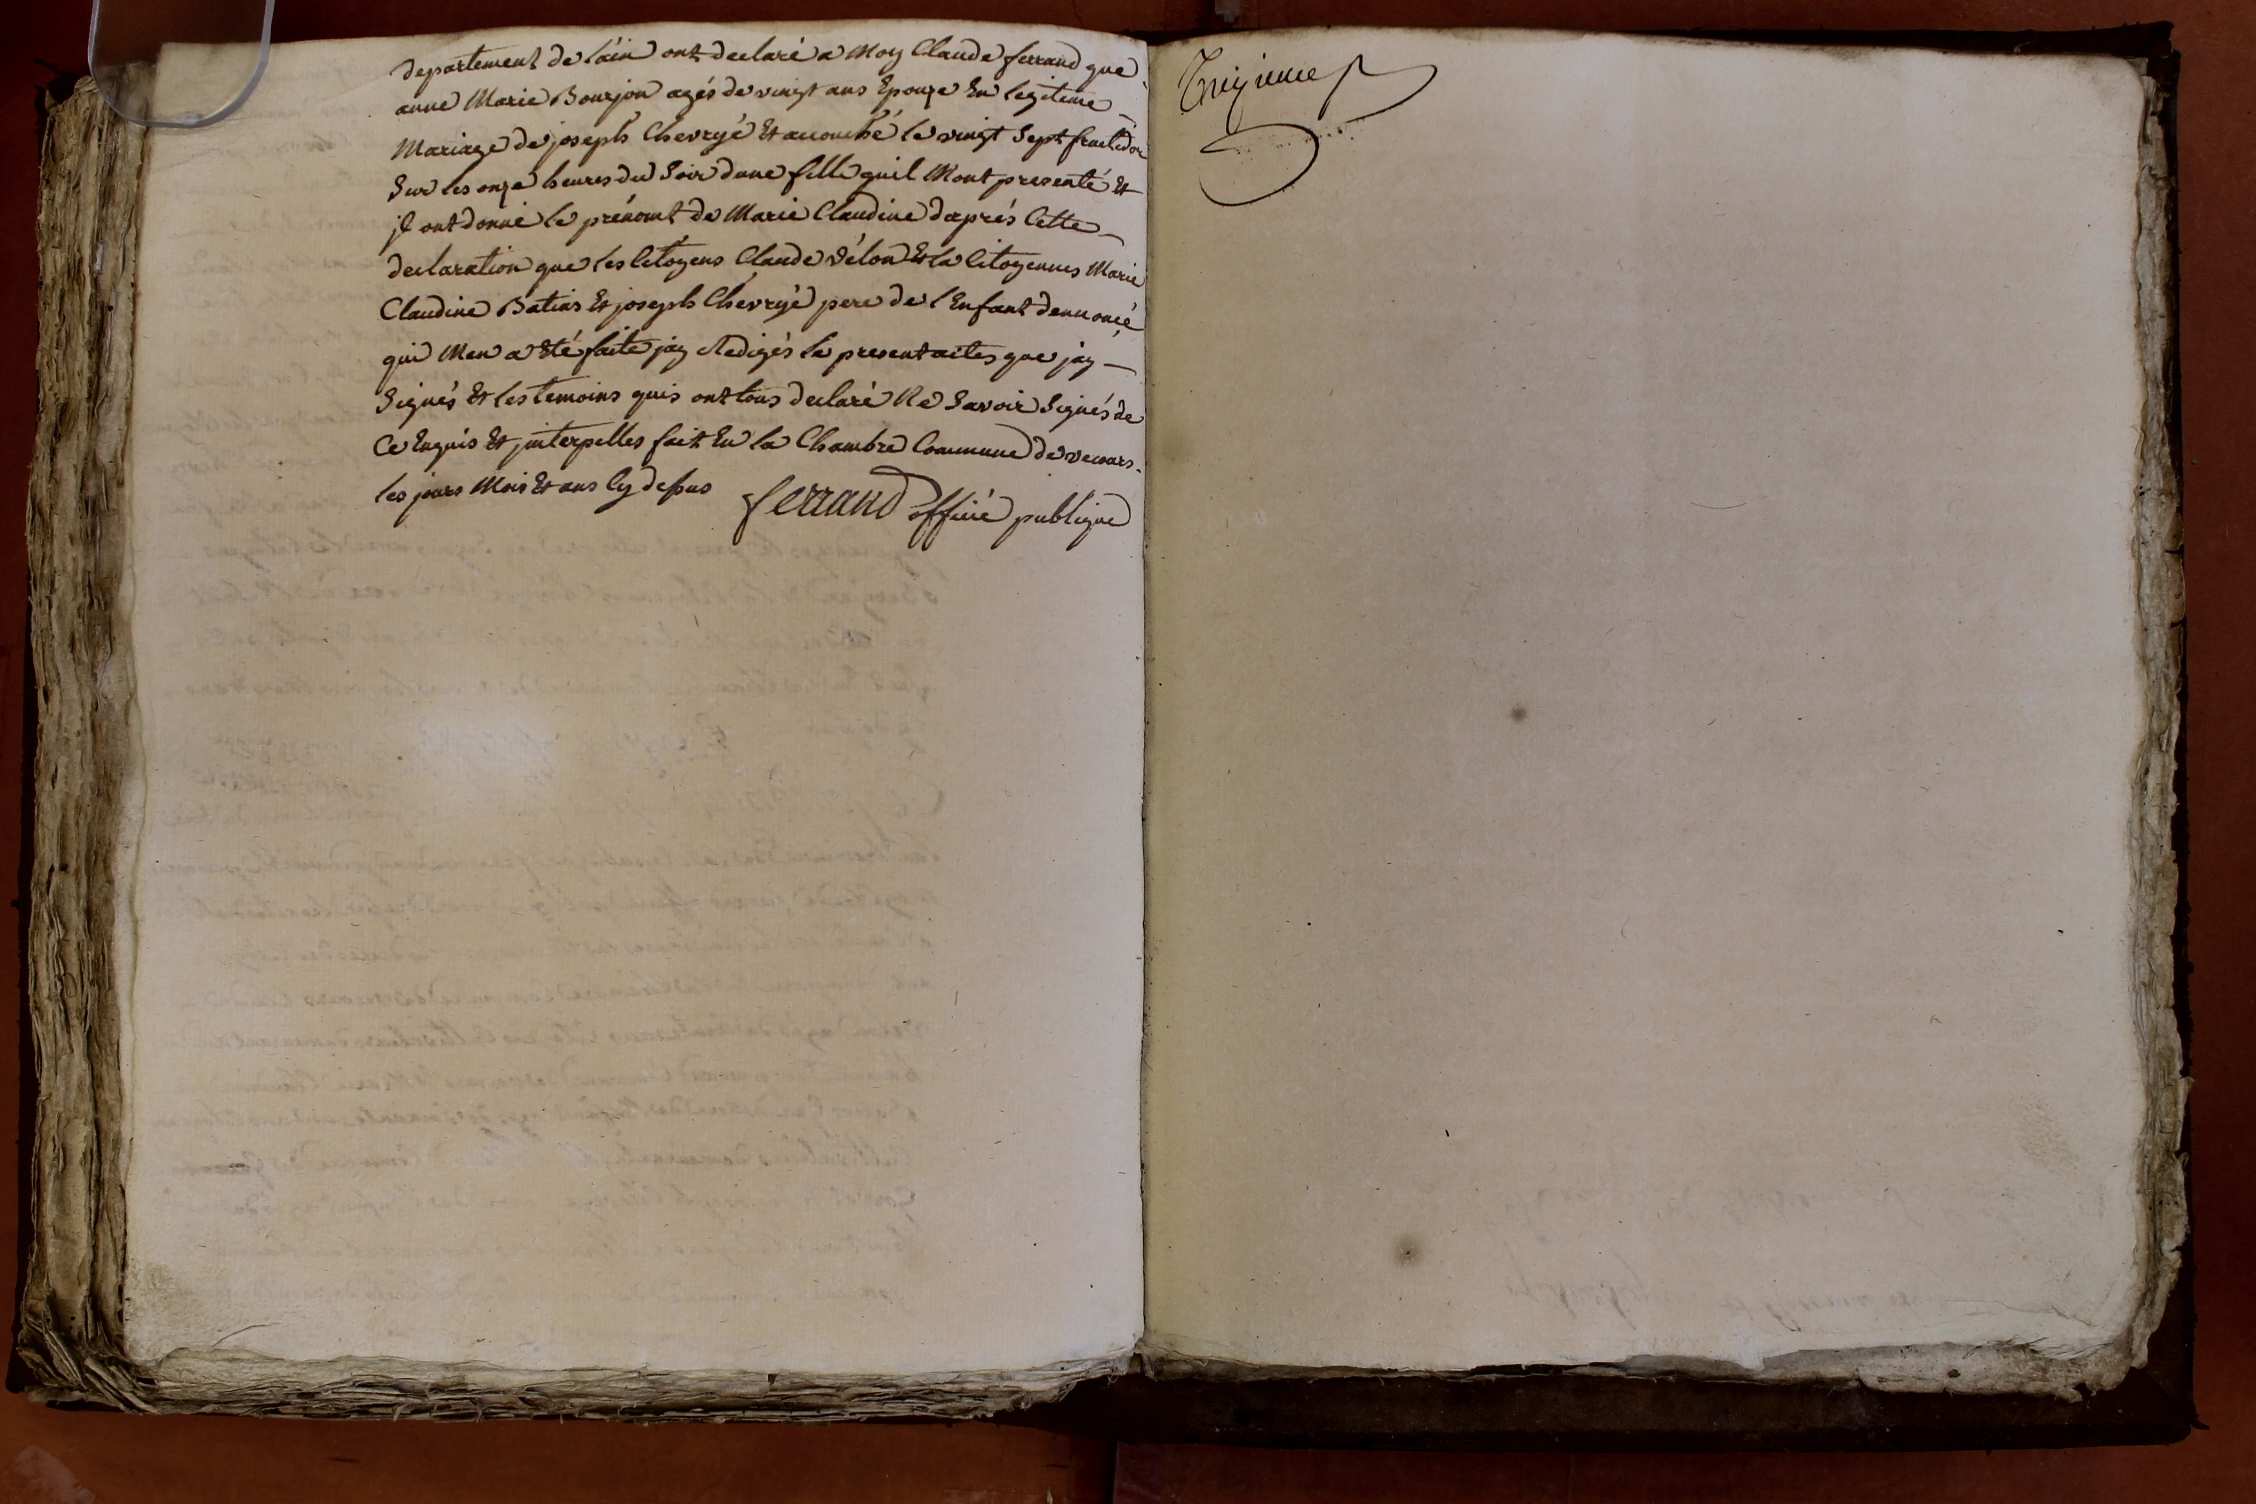 departement de l'ain ont declaré a Moy Claude ferrand que
anne Marie Bourjon agés de vingt ans Epouze En legiteme
Mariage de joseph Chevryé Et accouché le vingt Sept fructidor
Sur les onze heures du Soir dune fille quil Mont presenté Et
jl ont donné le prénomt de Marie Claudine daprés Cette
declaration que les Citoyens Claude Vélon Et la Citoyennes Marie
Claudine Batias Et joseph Chevryé pere de l'Enfant dennoncé
qui Men a Eté faite jay Redigés le present actes que jay
Signés Et les temoins quis ont tous declaré Ne Savoir Signés de
Ce Enquis Et jnterpelles fait En la Chambre Commune de vecours
les jours Mois Et ans Cy dessus
ferrand officié publique